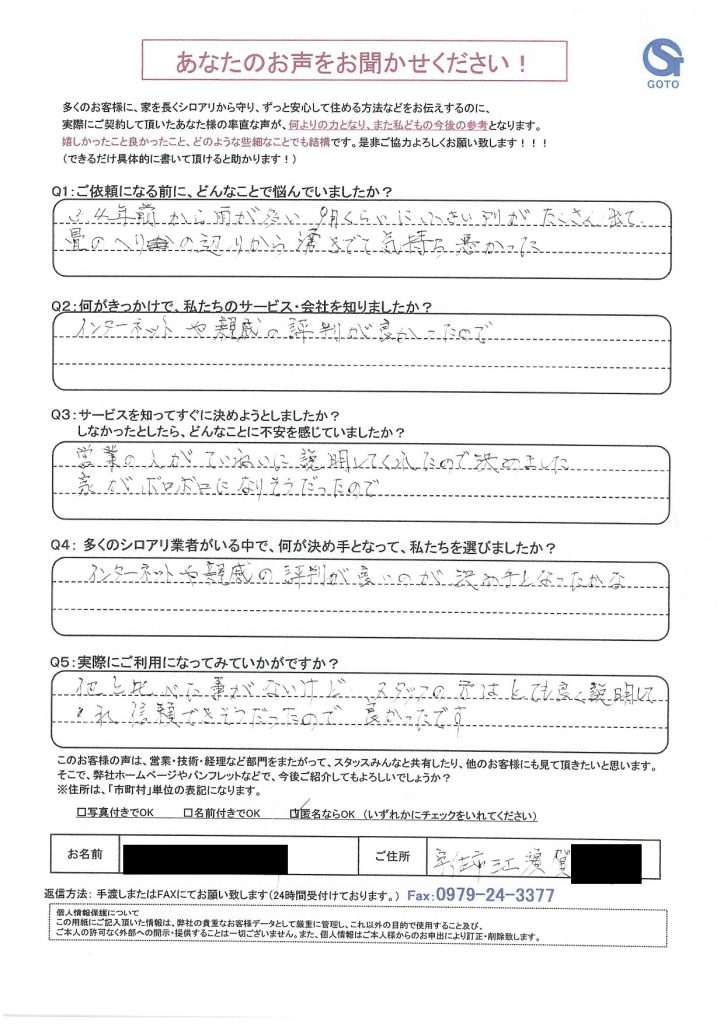 あなたのお声をお聞かせください！
GOTO
多くのお客様に、家を長くシロアリから守り、ずっと安心して住める方法などをお伝えするのに、
実際にご契約して頂いたあなた様の率直な声が、何よりの力となり、また私どもの今後の参考となります。
嬉しかったこと良かったこと、どのような些細なことでも結構です。是非ご協力よろしくお願い致します！！！
（できるだけ具体的に書いて頂けると助かります！）
Q1：ご依頼になる前に、どんなことで悩んでいましたか？
4年前から雨が多い 9月くらいに小さい羽がたくさん出て、
畳のヘリの辺りから湧きでて気持ち悪かった
Q2：何がきっかけで、私たちのサービス・会社を知りましたか？
インターネットや親戚の評判が良かったので
Q3：サービスを知ってすぐに決めようとしましたか？
しなかったとしたら、どんなことに不安を感じていましたか？
営業の人がていねいに説明してくれたので決めました
家がボロボロになりそうだったので
Q4： 多くのシロアリ業者がいる中で、何が決め手となって、私たちを選びましたか？
インターネットや親戚の評判が良いのが決め手となったかな
Q5：実際にご利用になってみていかがですか？
他と比べた事がないけど スタッフの方はとても良く説明して
くれ信頼できそうだったので良かったです
このお客様の声は、営業・技術・経理など部門をまたがって、スタッスみんなと共有したり、他のお客様にも見て頂きたいと思います。
そこで、弊社ホームページやパンフレットなどで、今後ご紹介してもよろしいでしょうか？
※住所は、「市町村」単位の表記になります。
□写真付きでOK □名前付きでOK ☑匿名ならOK （いずれかにチェックをいれてください）
お名前 ご住所 宇佐市江須賀
返信方法： 手渡しまたはFAXにてお願い致します（24時間受付けております。） Fax：0979-24-3377
個人情報保護について
この用紙にご記入頂いた情報は、弊社の貴重なお客様データとして厳重に管理し、これ以外の目的で使用すること及び、
ご本人の許可なく外部への開示・提供することは一切ございません。また、個人情報はご本人様からのお申出により訂正・削除致します。